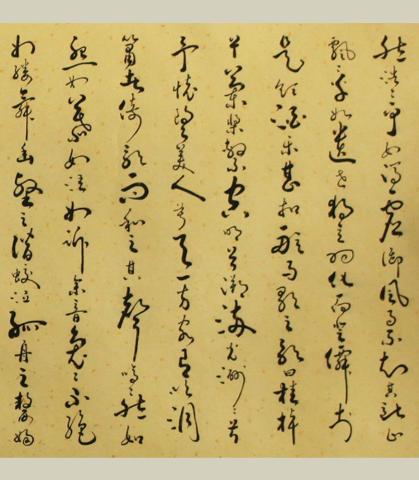 然浩浩乎如馮虛御風而不知其所止
飄飄乎如遺世獨立羽化而登僊於
是飲酒樂甚扣舷而歌之歌曰桂棹
兮蘭槳擊空明兮溯流光渺渺兮
予懷望美人兮天一方客有吹洞
簫者倚歌而和之其聲嗚嗚然如
怨如慕如泣如訴餘音裊裊不絕
如縷舞幽壑之潛蛟泣孤舟之嫠婦